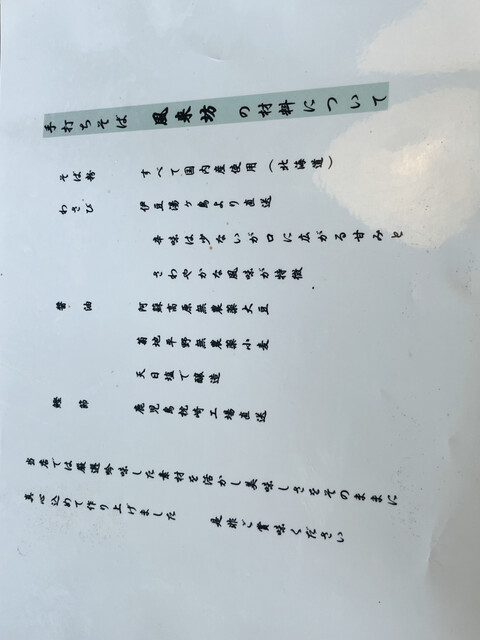 手打ちそば 風来坊 の材料について
そば粉 すべて国内産使用(北海道)
わさび 伊豆湯ヶ島より直送
辛味は少ないが口に広がる甘みと
さわやかな風味が特徴
醤油 阿蘇高原無農薬大豆
菊池平野無農薬小麦
天日塩で醸造
鰹節 鹿児島枕崎工場直送
当店では厳選吟味した素材を活かし美味しさをそのままに
真心込めて作り上げました
是非ご賞味ください